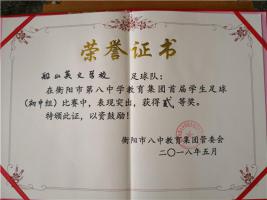 荣誉证书
船山英文学校 足球队：
在衡阳市第八中学教育集团首届学生足球
（初中组）比赛中，表现突出，获得贰等奖。
特颁此证，以资鼓励！
衡阳市八中教育集团管委会
二〇一八年五月